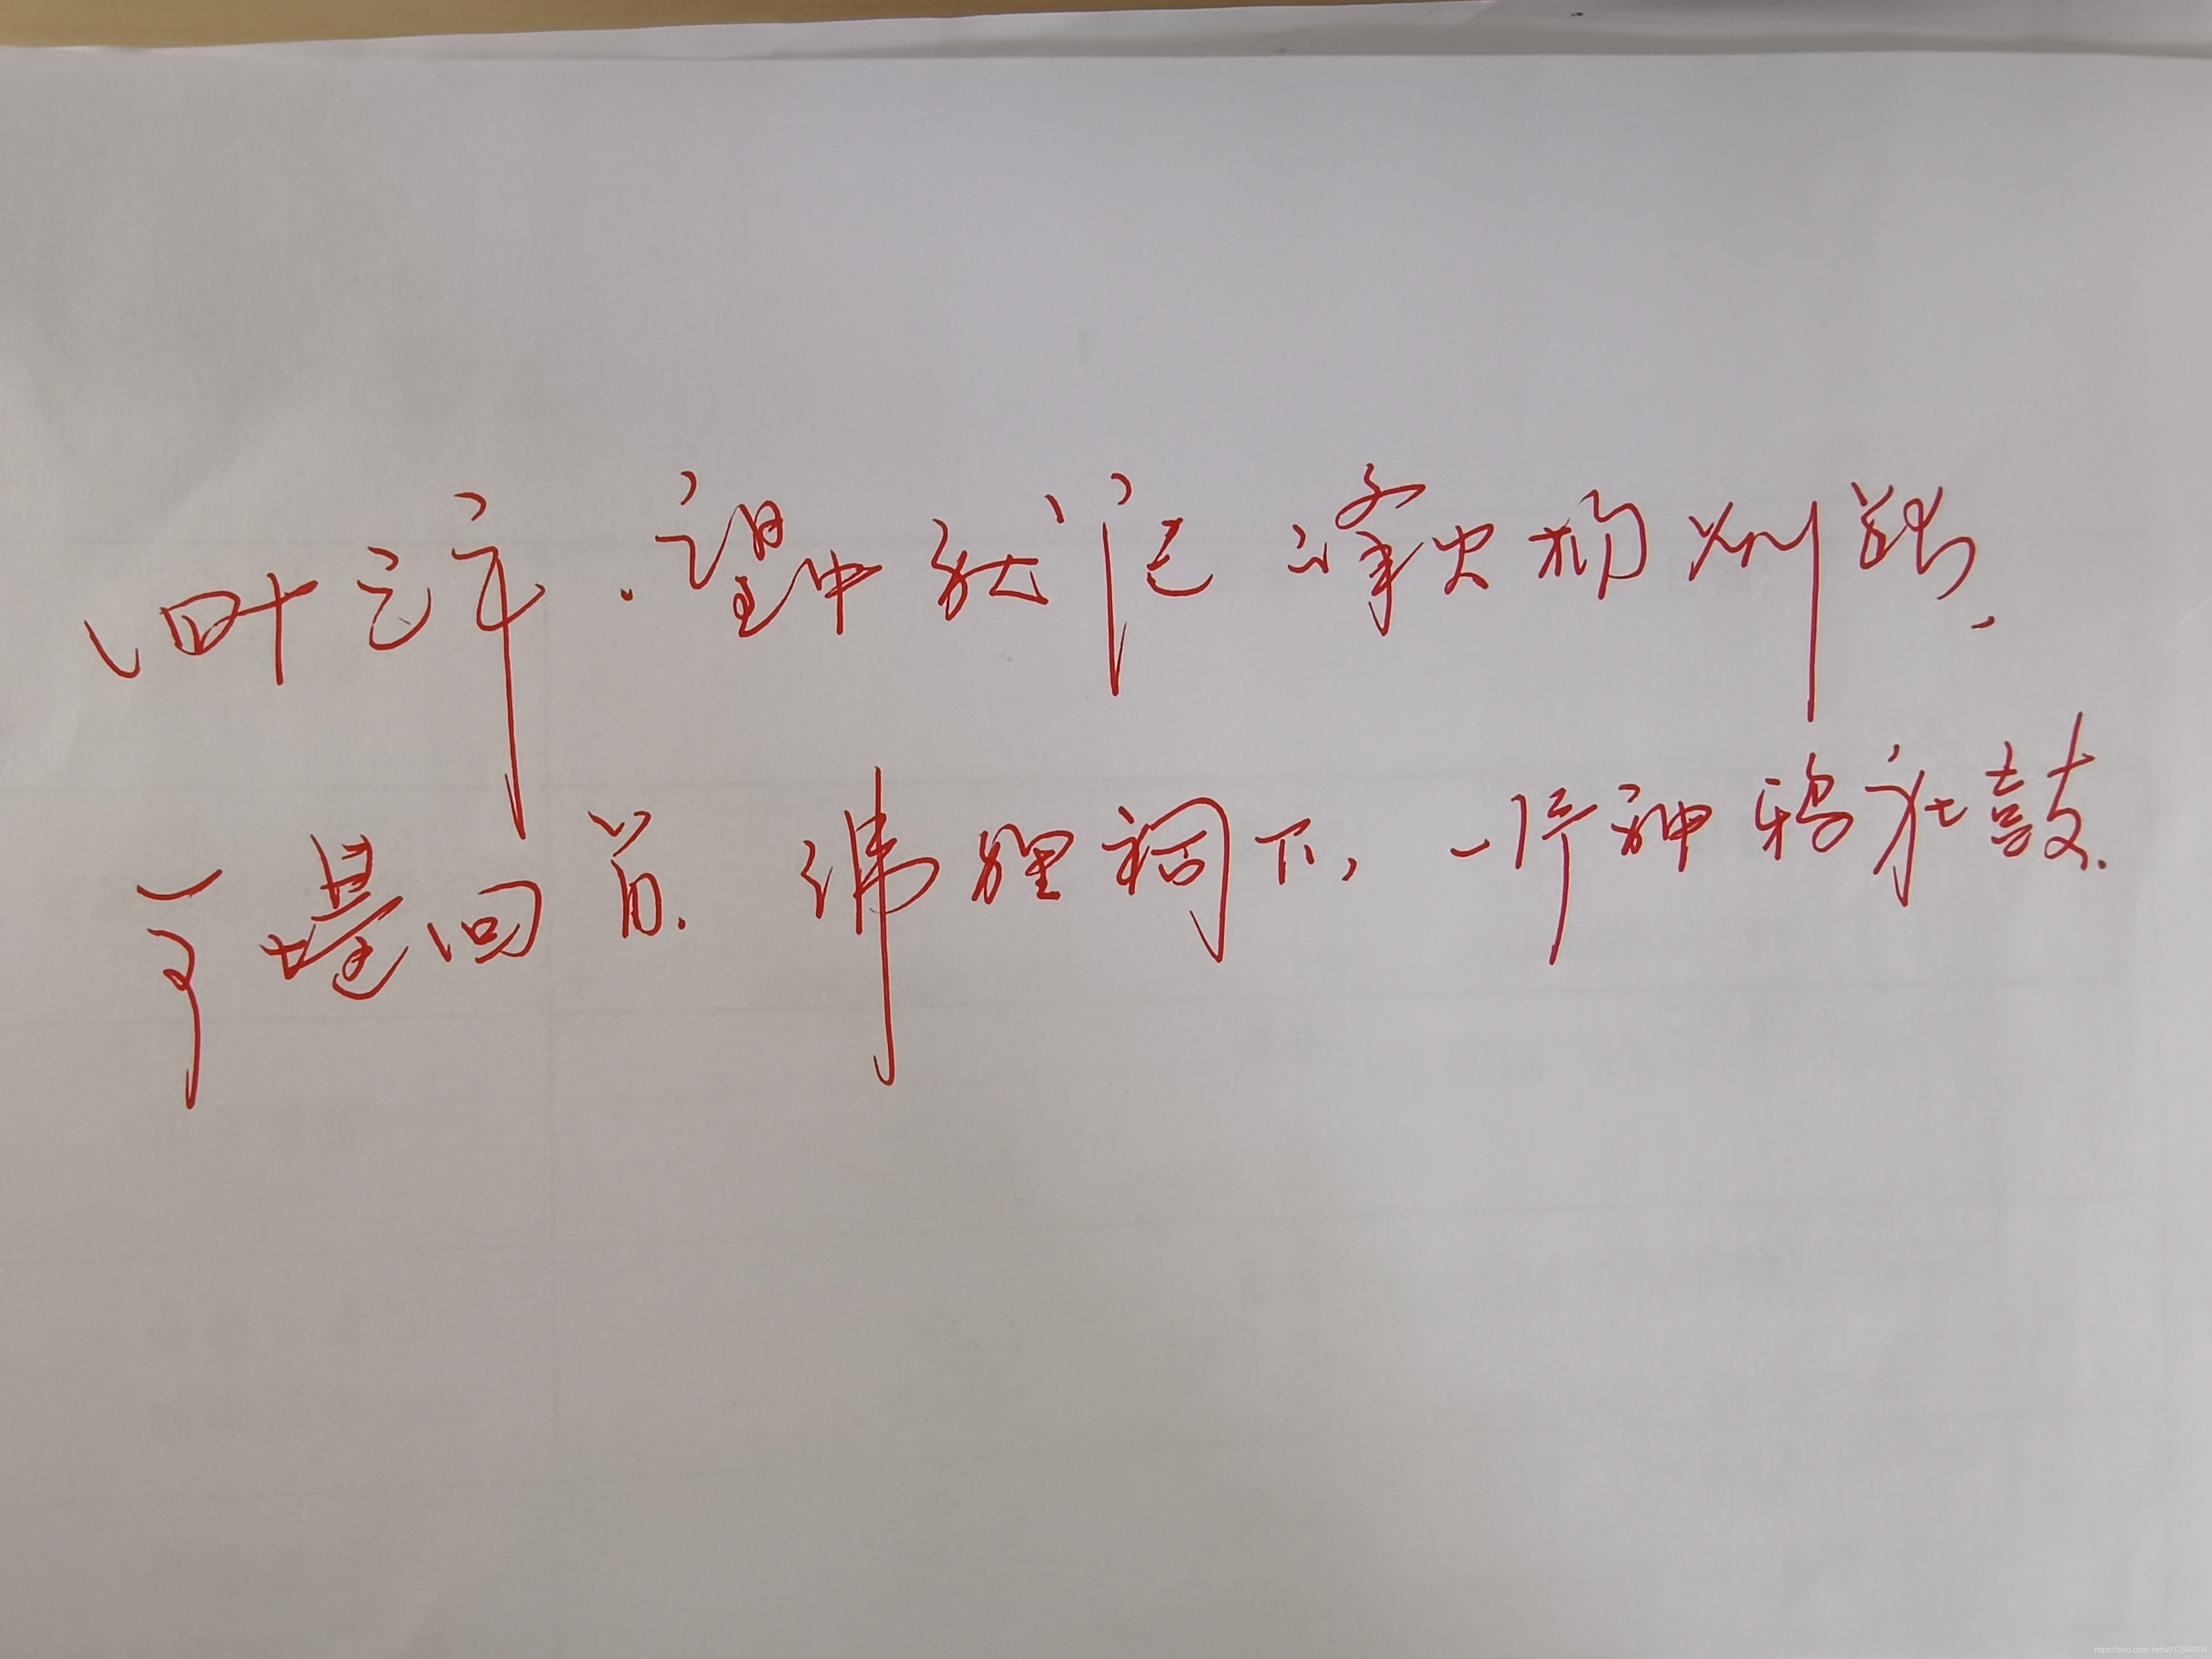 四十三年，望中犹记 烽火扬州路，
可堪回首，佛狸祠下，一片神鸦社鼓.
https://blog.csdn.net/u012848304